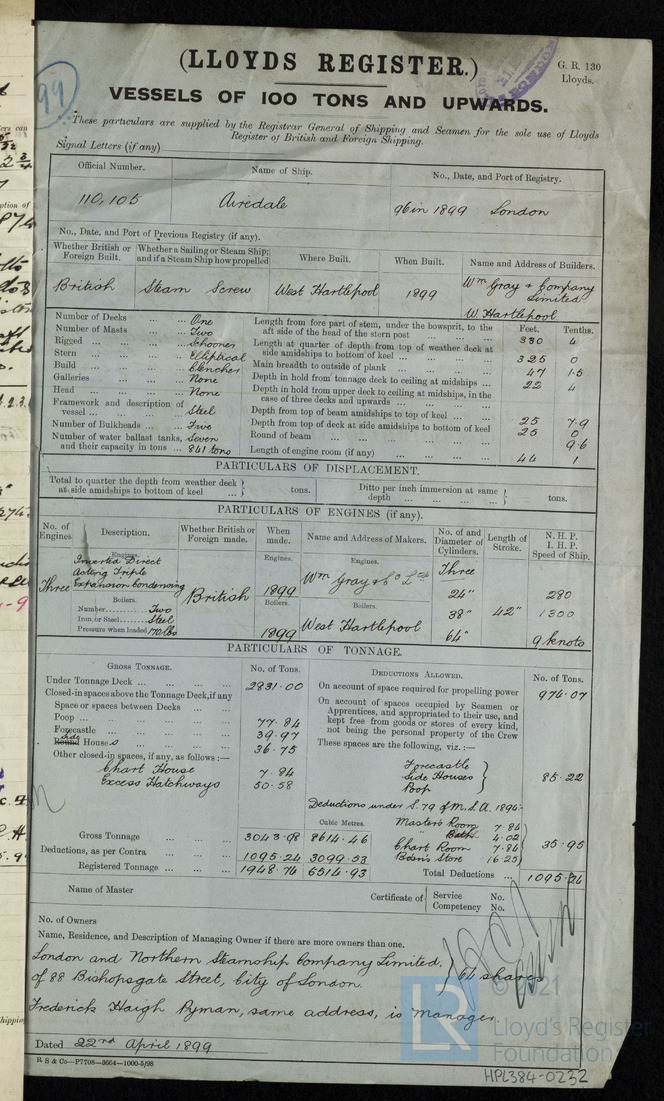 (LLOYDS REGISTER.)
G. R. 130
Lloyds.
99
VESSELS OF 100 TONS AND UPWARDS.
These particulars are supplied by the Registrar General of Shipping and Seamen for the sole use of Lloyds
Register of British and Foreign Shipping.
Signal Letters (if any)
Official Number. Name of Ship. No., Date, and Port of Registry.
110,105 Airedale 96 in 1899 London
No., Date, and Port of Previous Registry (if any).
Whether British or Foreign Built. Whether a Sailing or Steam Ship; and if a Steam Ship how propelled Where Built. When Built. Name and Address of Builders.
British Steam Screw West Hartlepool 1899 Wm Gray & Company Limited W. Hartlepool
Number of Decks ... ... One
Number of Masts ... ... Two
Rigged ... ... ... Schooner
Stern ... ... ... Elliptical
Build ... ... ... Clencher
Galleries ... ... ... None
Head ... ... ... None
Framework and description of vessel ... ... ... Steel
Number of Bulkheads ... Five
Number of water ballast tanks, Seven
and their capacity in tons ... 841 tons
Feet. Tenths.
Length from fore part of stem, under the bowsprit, to the aft side of the head of the stern post 330 4
Length at quarter of depth from top of weather deck at side amidships to bottom of keel ... 325 0
Main breadth to outside of plank ... 47 1.5
Depth in hold from tonnage deck to ceiling at midships ... 22 4
Depth in hold from upper deck to ceiling at midships, in the case of three decks and upwards
Depth from top of beam amidships to top of keel ... 25 7.9
Depth from top of deck at side amidships to bottom of keel 25 0
Round of beam ... 9.6
Length of engine room (if any) ... 44 1
PARTICULARS OF DISPLACEMENT.
Total to quarter the depth from weather deck at side amidships to bottom of keel ... tons.
Ditto per inch immersion at same depth ... tons.
PARTICULARS OF ENGINES (if any).
No. of Engines. Description. Whether British or Foreign made. When made. Name and Address of Makers. No. of and Diameter of Cylinders. Length of Stroke. N. H. P. I. H. P. Speed of Ship.
Engines. Engines. Engines.
Three Inverted Direct Acting Triple Expansion Condensing British 1899 Wm Gray & Co Ltd Three 24" 38" 64" 42" 280 1300 9 knots
Boilers. Boilers. Boilers.
Number......... Two
Iron or Steel...... Steel
Pressure when loaded 170 lbs
1899 West Hartlepool
PARTICULARS OF TONNAGE.
GROSS TONNAGE. No. of Tons.
Under Tonnage Deck ... 2831.00
Closed-in spaces above the Tonnage Deck, if any
Space or spaces between Decks ...
Poop ... 77.84
Forecastle 39.97
Round Side Houses 36.75
Other closed-in spaces, if any, as follows:—
Chart House 7.84
Excess Hatchways 50.58
Cubic Metres.
Gross Tonnage ... 3043.98 8614.46
Deductions, as per Contra ... 1095.24 3099.53
Registered Tonnage ... 1948.74 5514.93
DEDUCTIONS ALLOWED. No. of Tons.
On account of space required for propelling power 974.07
On account of spaces occupied by Seamen or Apprentices, and appropriated to their use, and kept free from goods or stores of every kind, not being the personal property of the Crew
These spaces are the following, viz.:—
Forecastle
Side Houses
Poop
85.22
Deductions under S. 79 of M.S.A. 1894:-
Master's Room 7.84
" Bath 4.02
Chart Room 7.84
Bosn's Store 16.25
35.95
Total Deductions ... 1095.24
Name of Master
Certificate of Service No. Competency No.
No. of Owners
Name, Residence, and Description of Managing Owner if there are more owners than one.
London and Northern Steamship Company Limited,
of 88 Bishopsgate Street, City of London. 64 shares
Frederick Haigh Pyman, same address, is manager.
Dated 22nd April 1899
R S & Co—P7708—3664—1000-5/98
LR
© 2021
Lloyd's Register
Foundation
HPL384-0232